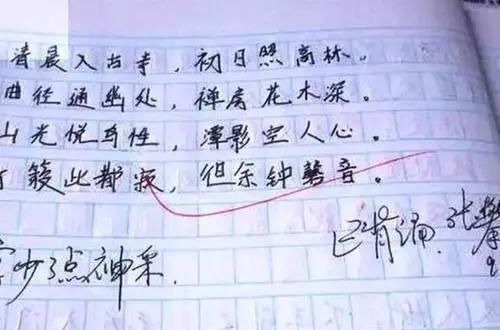 清晨入古寺，初日照高林。
曲径通幽处，禅房花木深。
山光悦鸟性，潭影空人心。
籁此都寂，但余钟磬音。
已背诵.张
少了点神采.